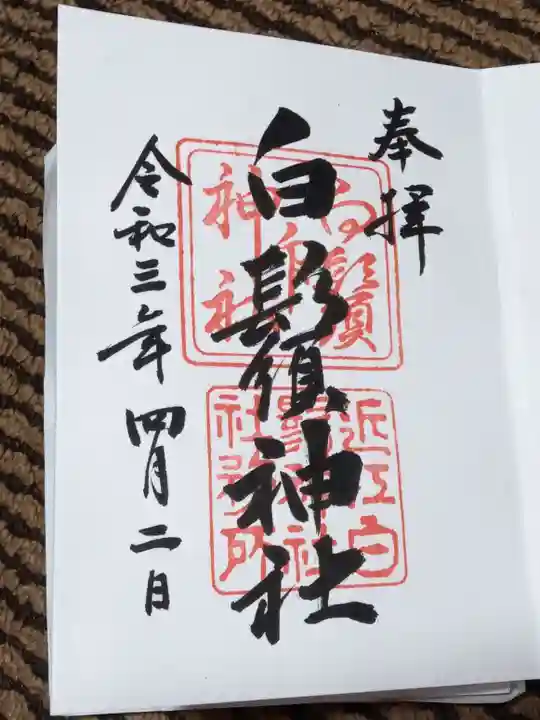 奉拝
白鬚神社
令和三年四月二日
近江白
鬚神社
社務所